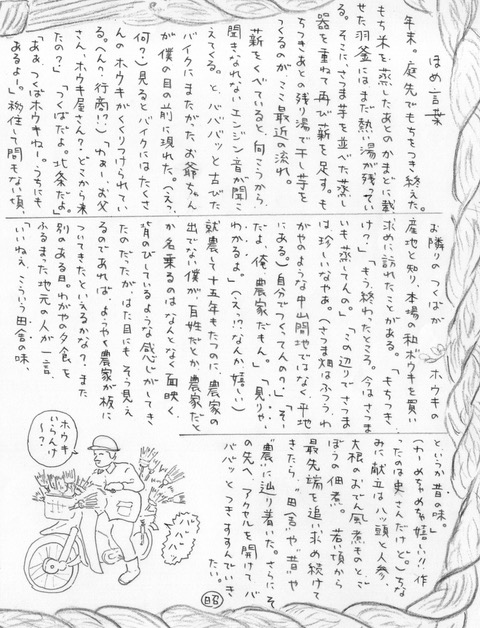 ほめ言葉
年末。庭先でもちをつき終えた。
もち米を蒸したあとのかまどに載
せた羽釜にはまだ熱い湯が残ってい
る。そこに、さつま芋を並べた蒸し
器を重ねて再び薪を足す。も
ちつきあとの残り湯で干し芋を
つくるのが、ここ最近の流れ。
薪をくべていると、向こうから
聞きなれないエンジン音が聞こ
えてくる。と、ババババッと古びた
バイクにまたがった、お爺ちゃん
が僕の目の前に現れた。(えっ?
何?)見るとバイクにはたくさ
んのホウキがくくりつけられてい
る。(へん?行商!?)「わぁー、お父
さん、ホウキ屋さん?どこから来
たの?」「つくばだよ。北条だよ。」
「ああ、つくばホウキねー。うちにも
あるよー。」移住して間もない頃、
お隣りのつくばがホウキの
産地と知り、本場の和ボウキを買い
求めに訪れたことがある。「もちつき
け?」「もう終わったところ。今はさつま
いも蒸してんの」「この辺りでさつま
は珍しいなやぁ。」(さつま畑はふつう、わ
がやのような中山間地ではなく、平地
にある)「自分でつくってんの?」「そ
だよ、俺、農家だもん。」「見りゃ
わかるよ。」(えっ!?なんか嬉しい)
就農して十五年もたつのに、農家の
出でない僕が、百姓だとか農家だと
か名乗るのはなんとなく面映く、
背のびしているような感じがしてき
たのだったが、はた目にもそう見え
るのであれば、ようやく農家が板に
ついてきたといえるかな?また
別のある日。わがやの夕食を
ふるまった地元の人が一言。
「いいねえ、こういう田舎の味
というか昔の味。」
(わーめちゃめちゃ嬉しい!!作
ったのは奥さんだけど。)ちな
みに献立は八ッ頭と人参、
大根のおでん風煮ものとご
ぼうの佃煮。若い頃から
最先端を追い求め続けて
きたら、"田舎"や"昔"や
農に辿り着いた。さらにそ
の先へ、アクセルを開けてバ
ババッとつきすすんでいき
たい。
昭
ホウキ
いらんけ
〜?
ババババ